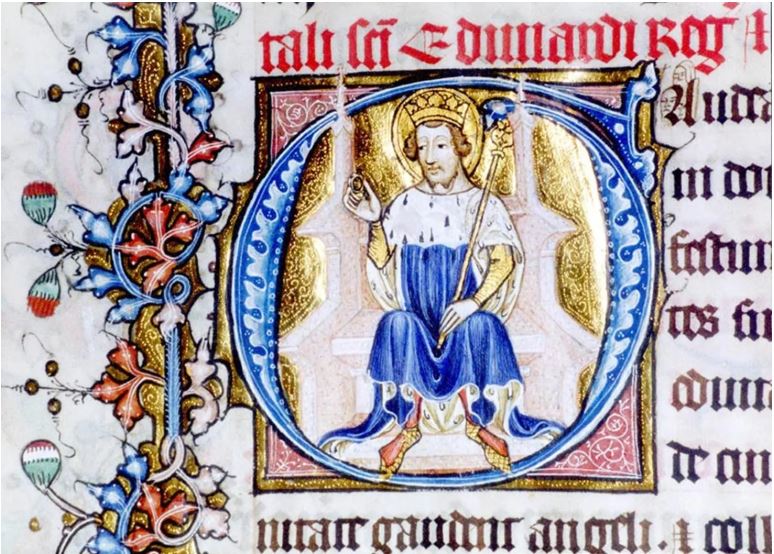 tali sc̄i Eduuardi Reg
Audea
in do
festum
tes su
eduua
de cui
nitate gaudent angeli. ⁊ coll